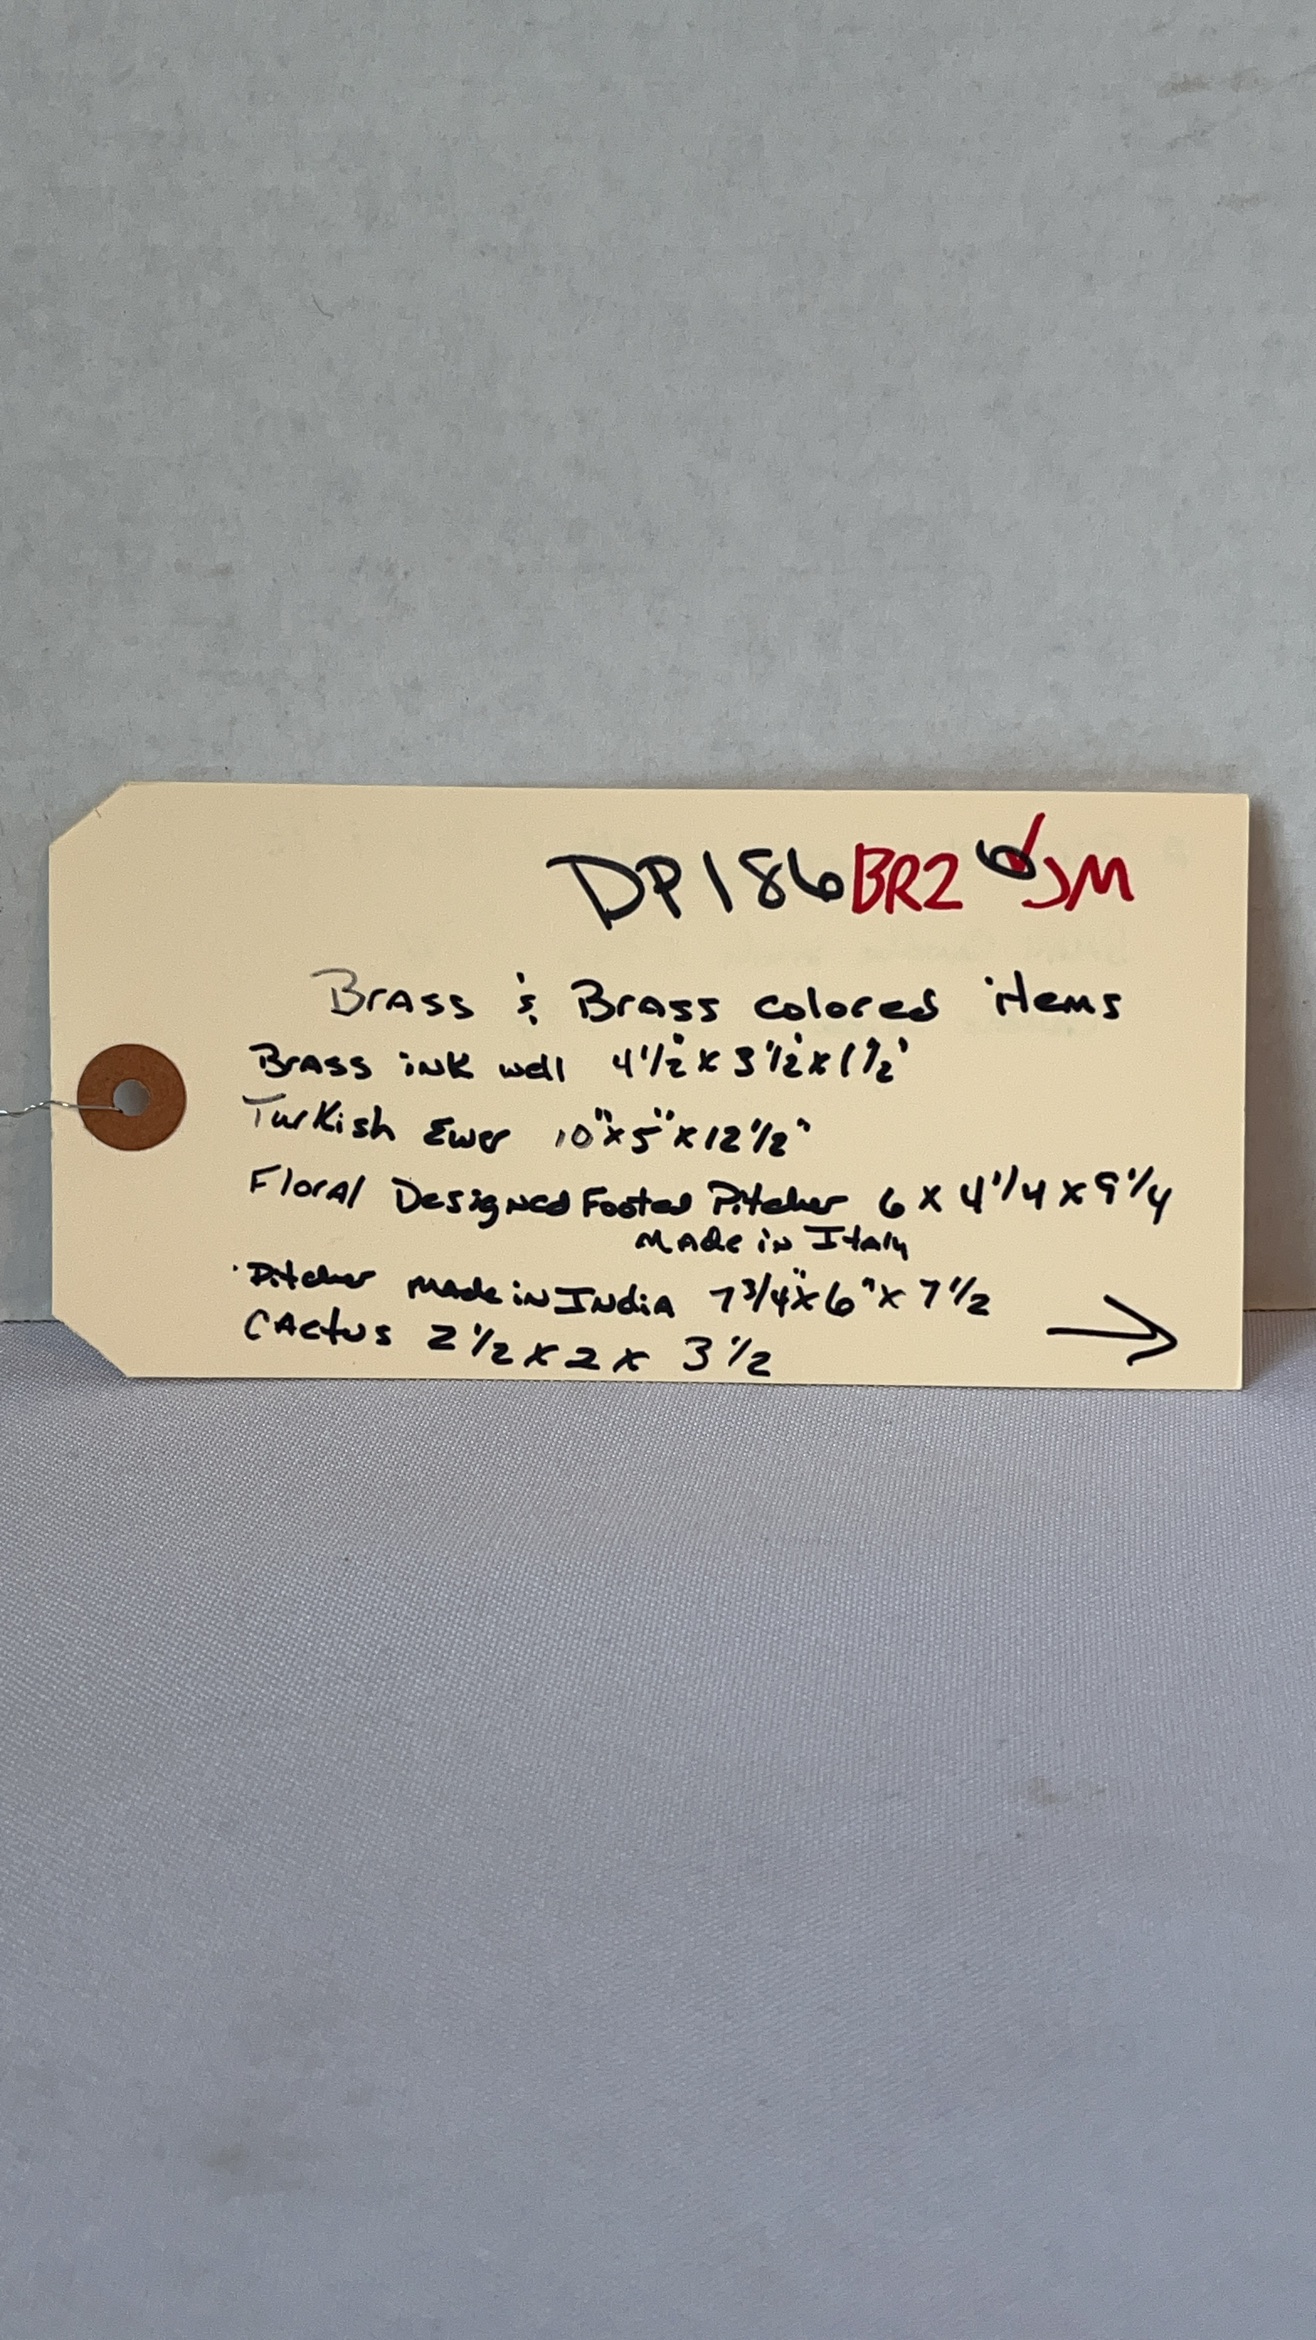 DP186 BR2 JM
Brass & Brass colored items
Brass ink well 4 1/2" x 3 1/2" x 1 1/2"
Turkish Ewer 10" x 5" x 12 1/2"
Floral Designed Footed Pitcher 6 x 4 1/4 x 9 1/4
Made in Italy
Pitcher Made in India 7 3/4" x 6" x 7 1/2
Cactus 2 1/2 x 2 x 3 1/2